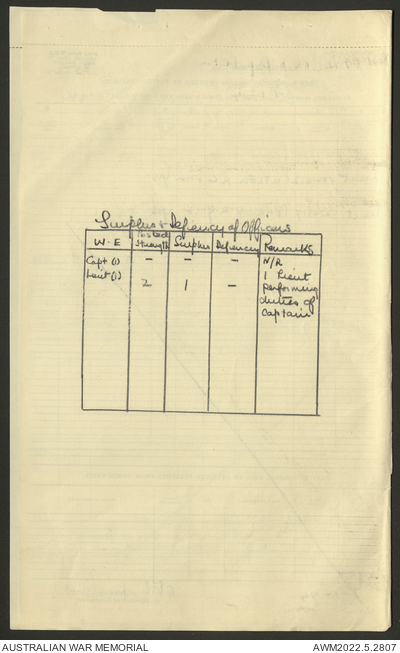 Surplus & Defiency of Officers
W-E Posted Strength Surplus Defiency Remarks
Capt (1) - - - N/R
Lieut (1) 2 1 - 1 Lieut
performing
duties of
Captain
AUSTRALIAN WAR MEMORIAL AWM2022.5.2807